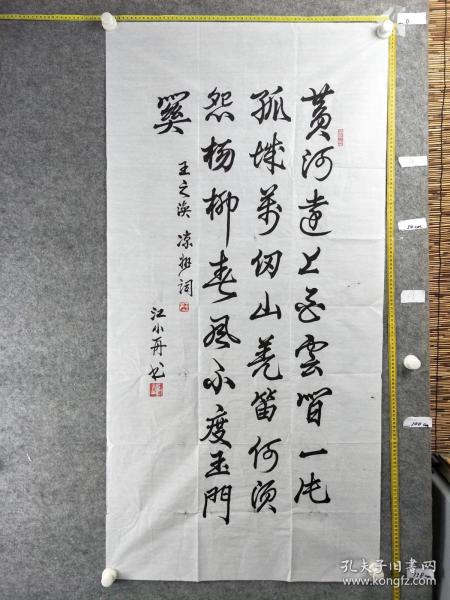 黄河遠上白雲間一片
孤城萬仞山羌笛何須
怨楊柳春風不度玉門
關
王之渙 凉州詞
江小舟书
50cm
100cm
孔夫子旧书网
www.kongfz.com